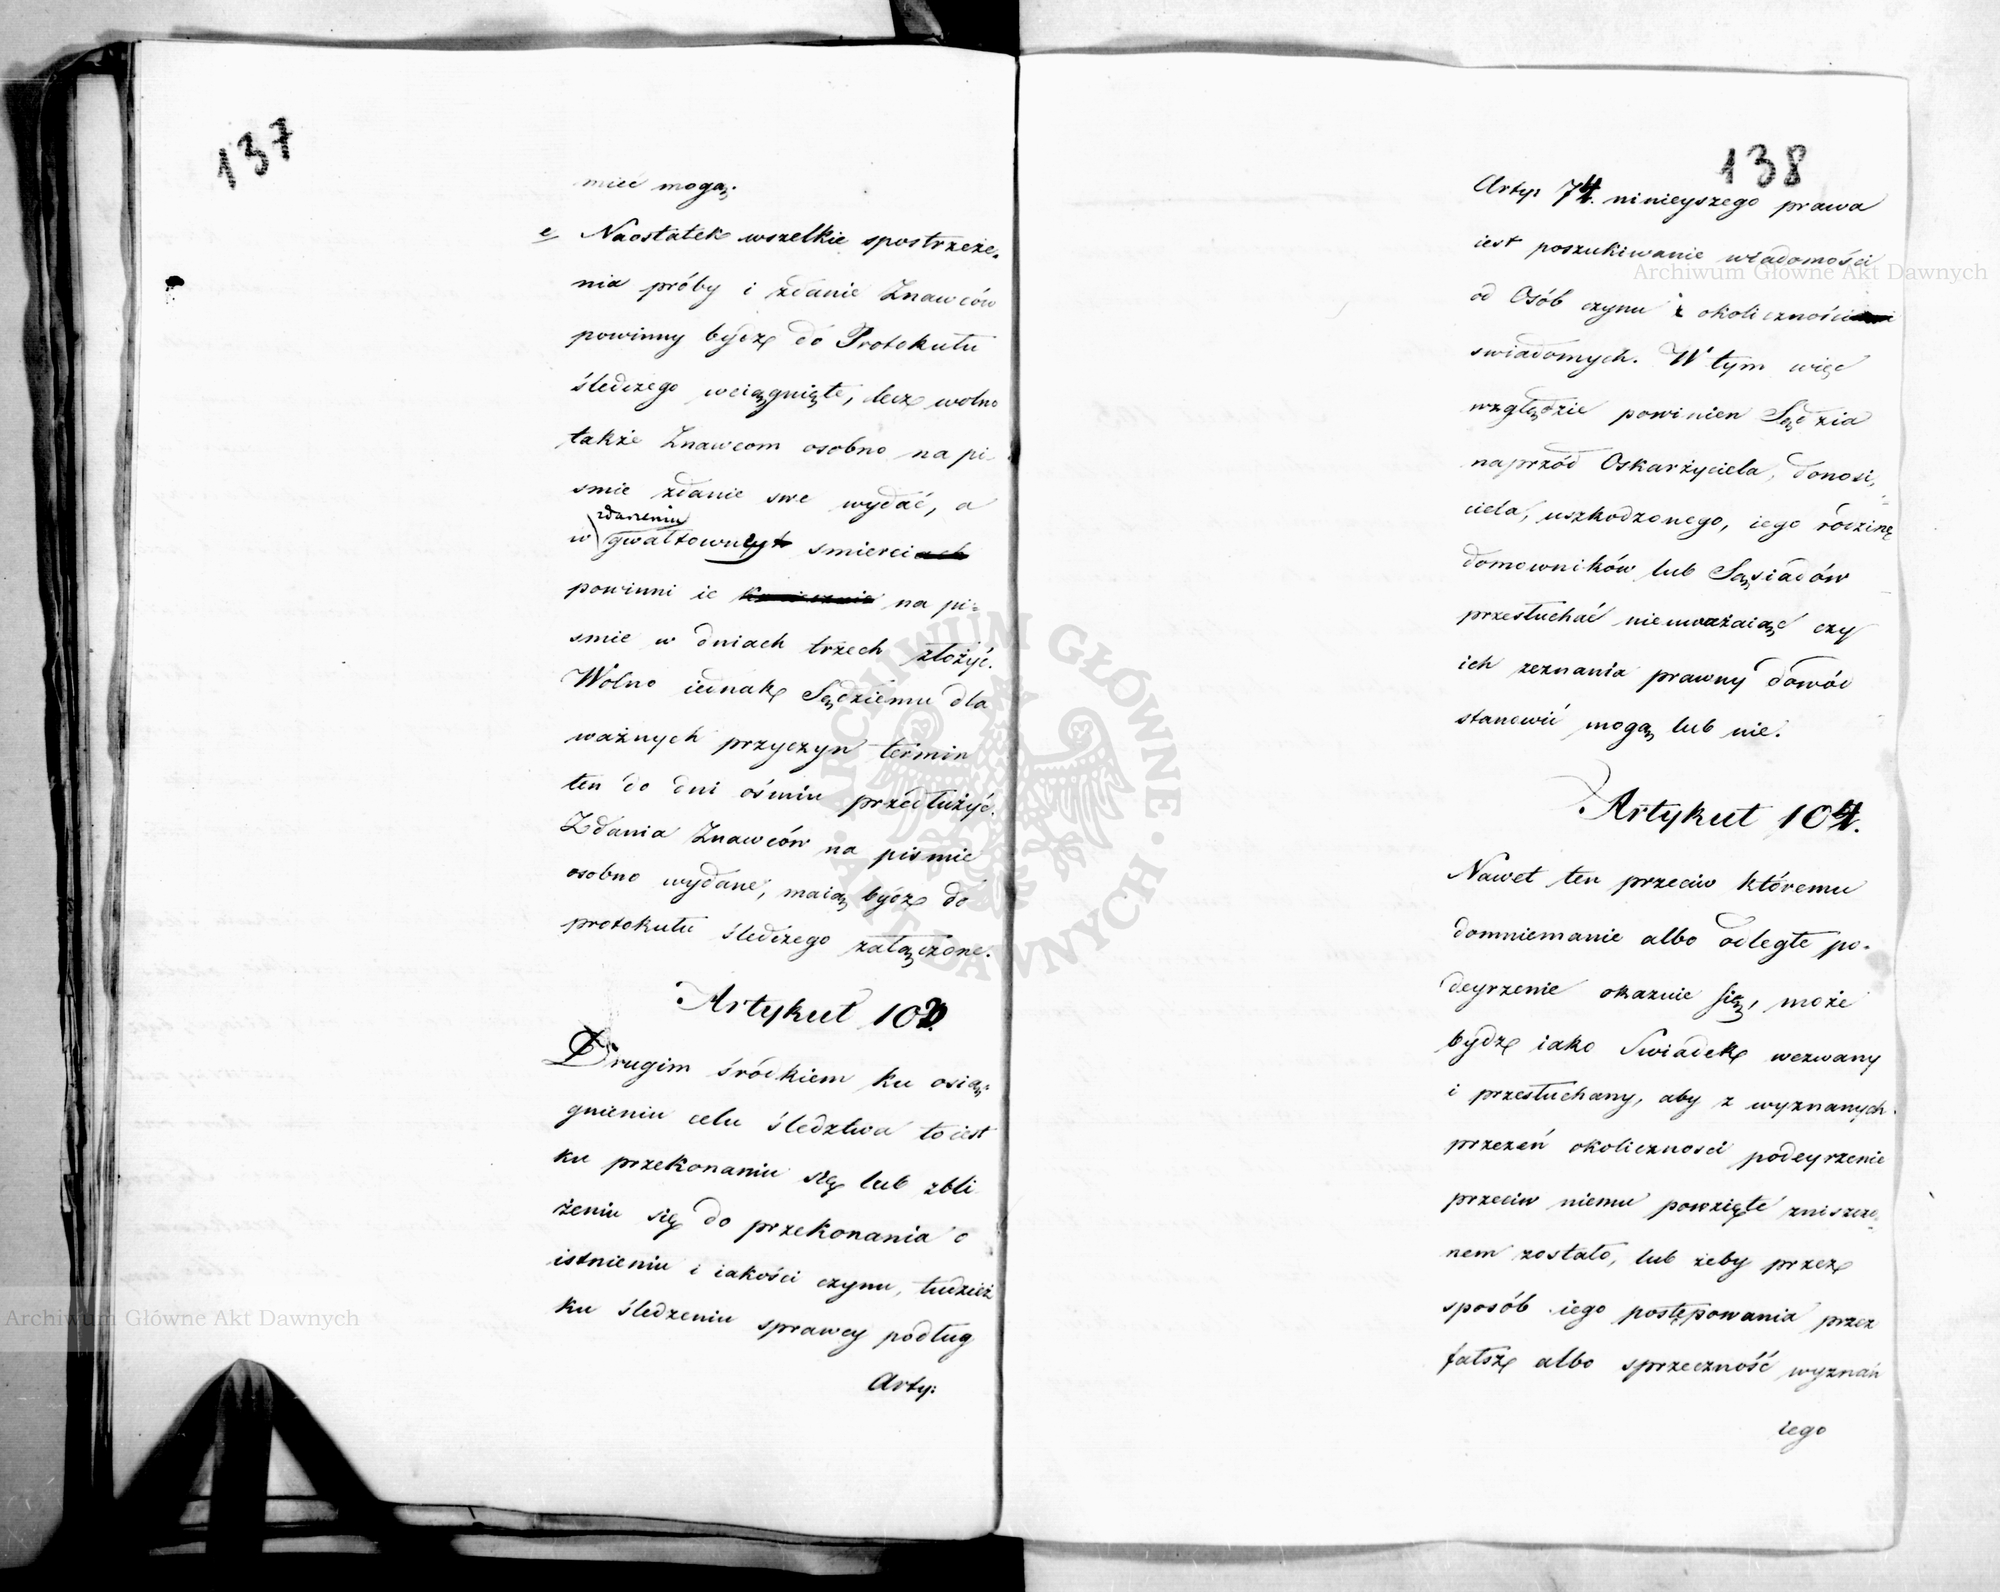 137
mieć mogą.
e Naostatek wszelkie spostrzeże-
nia próby i zdanie Znawców
powinny bydź do Protokułu
śledczego wciągnięte, lecz wolno
także Znawcom osobno na pi-
smie zdanie swe wydać, a
zdarzeniu
w gwałtowney smierci
powinni ie na pi-
smie w dniach trzech złożyć.
Wolno iednak Sędziemu dla
ważnych przyczyn termin
ten do dni ośmiu przedłużyć.
Zdania Znawców na pismie
osobno wydane, maią bydź do
protokułu śledczego załączone.
Artykuł 103.
Drugim śródkiem ku osią-
gnieniu celu śledztwa to iest
ku przekonaniu się lub zbli-
żeniu się do przekonania o
istnieniu i iakości czynu, tudzież
ku śledzeniu sprawcy podług
Arty:
138
Arty: 74. ninieyszego prawa
iest poszukiwanie wiadomości
od Osób czynu i okoliczności
swiadomych. W tym więc
względzie powinien Sędzia
naprzód Oskarżyciela, donosi-
ciela, uszkodzonego, iego rodzinę
domowników lub Sąsiadów
przesłuchać nieuważaiąc czy
ich zeznania prawny dowód
stanowić mogą lub nie.
Artykuł 104.
Nawet ten przeciw któremu
domniemanie albo odległe po-
deyrzenie okazuie się, może
bydź iako Swiadek wezwany
i przesłuchany, aby z wyznanych
przezeń okoliczności podeyrzenie
przeciw niemu powzięte zniszczo-
nem zostało, lub żeby przez
sposób iego postępowania przez
fałsz albo sprzeczność wyznań
iego
Archiwum Główne Akt Dawnych
Archiwum Główne Akt Dawnych
ARCHIWUM GŁÓWNE AKT DAWNYCH